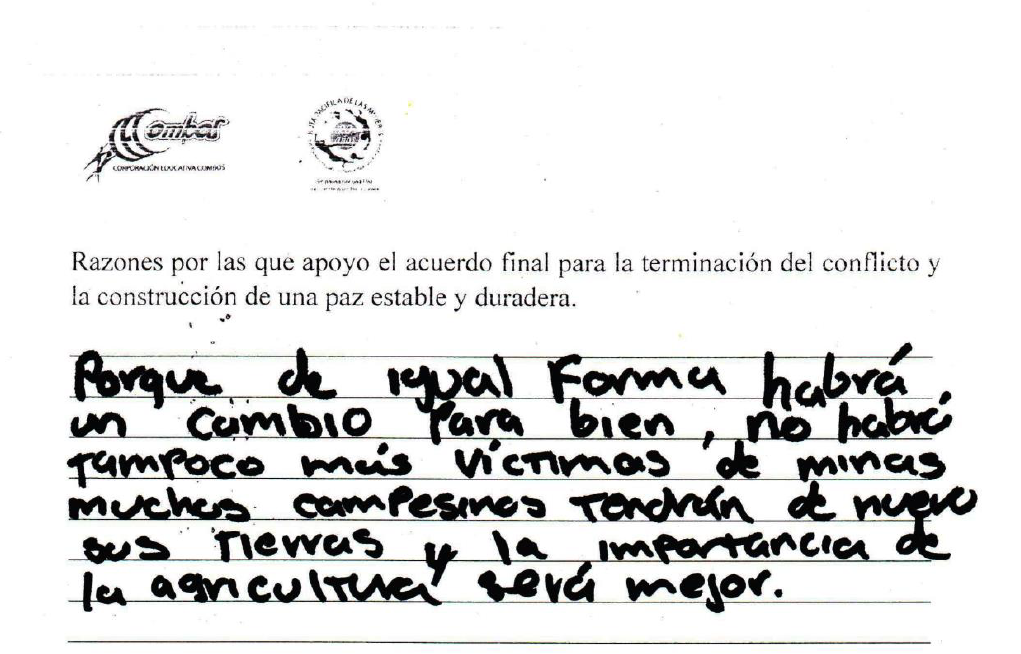 Combos
CORPORACIÓN EDUCATIVA COMBOS
RUTA PACÍFICA DE LAS MUJERES
Razones por las que apoyo el acuerdo final para la terminación del conflicto y
la construcción de una paz estable y duradera.
Porque de igual Forma habrá
un cambio Para bien, no habrá
tampoco más víctimas de minas
muchos campesinos tendrán de nuevo
sus tierras y la importancia de
la agricultura será mejor.